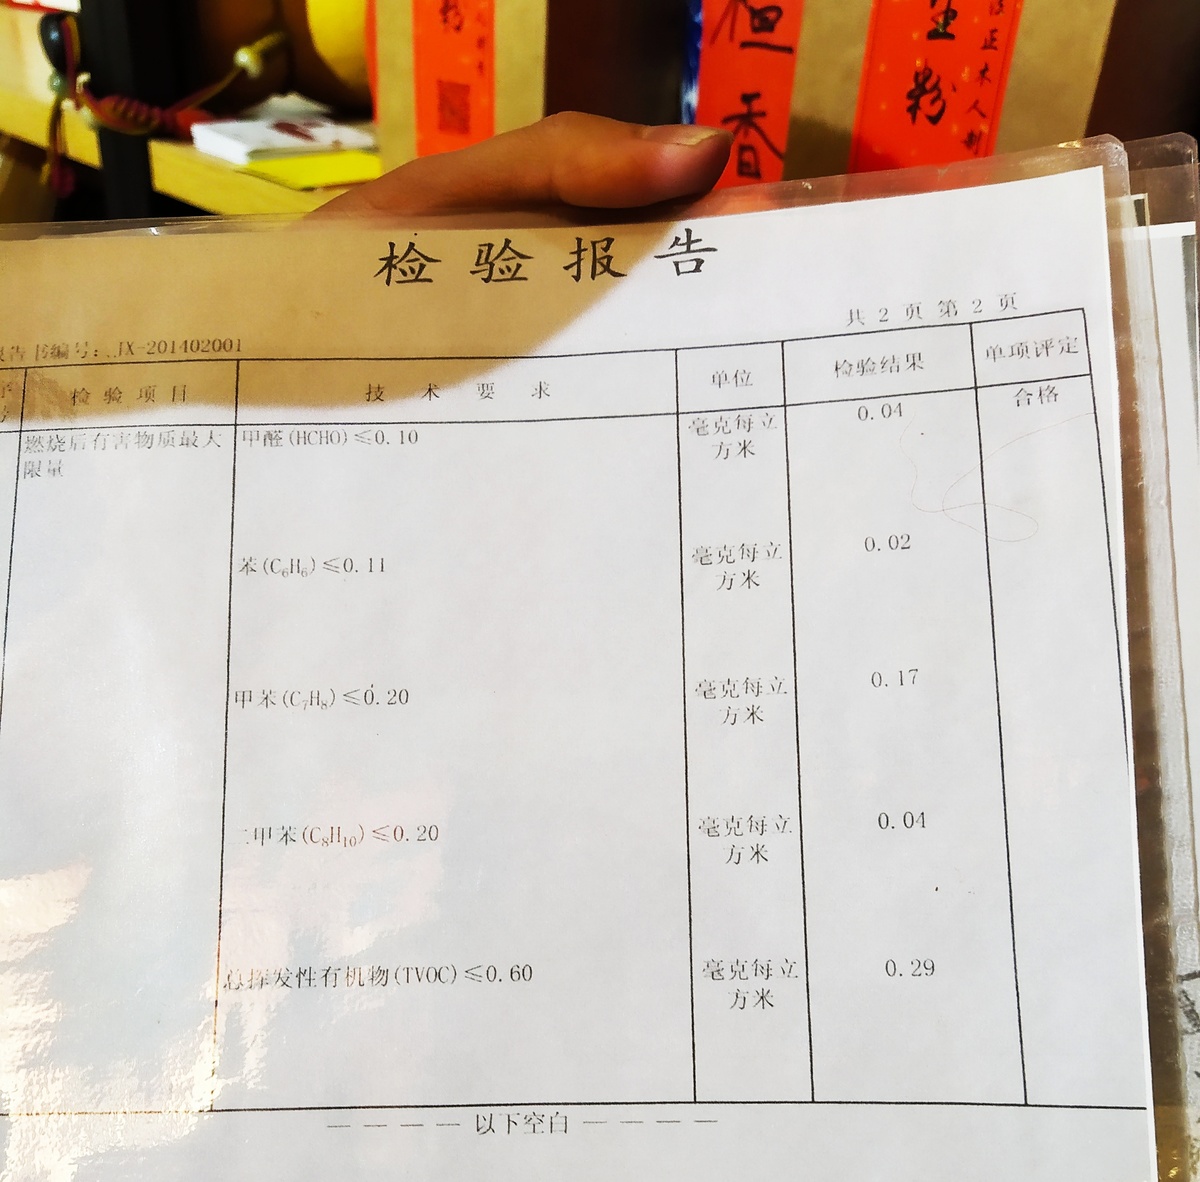 粉
檀
香
粉
正木人制
检验报告
共2页 第2页
报告书编号：JX-201402001
检验项目 技术要求 单位 检验结果 单项评定
燃烧后有害物质最大
限量
甲醛(HCHO)≤0.10 毫克每立
方米 0.04 合格
苯(C₆H₆)≤0.11 毫克每立
方米 0.02
甲苯(C₇H₈)≤0.20 毫克每立
方米 0.17
二甲苯(C₈H₁₀)≤0.20 毫克每立
方米 0.04
总挥发性有机物(TVOC)≤0.60 毫克每立
方米 0.29
————以下空白————